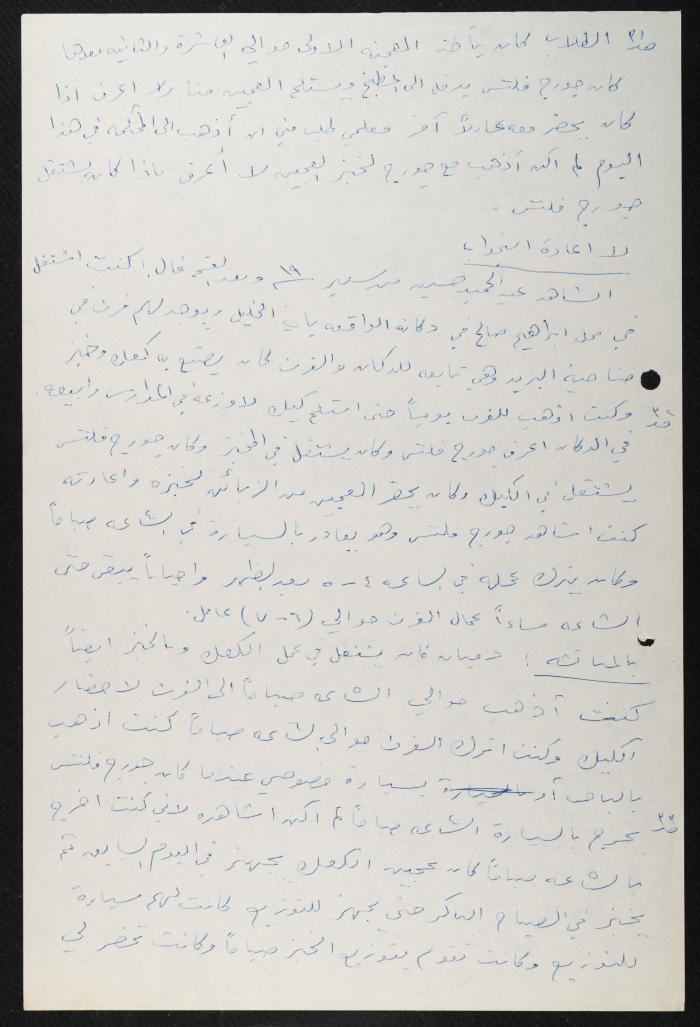 الطلاب كان يأخذ العجنه الاولى حوالي العاشرة والثانيه بعدها
كان جورج فلتس يدخل الى المطبخ ويستلم العجين منا ولا اعرف اذا
كان يحضر معه عاملاً آخر معلمي طلب مني ان أذهب الى المحكمه في هذا
اليوم لم اكن أذهب مع جورج لخبز العجين لا أعرف ماذا كان يشتغل
جورج فلتس .
لا اعادة استجواب
الشاهد عبد الحميد حسين من سعير ١٩ وبعد القسم قال : كنت اشتغل
في محل ابراهيم صالح في دكانه الواقعه باب الخليل ويوجد لهم فرن في
ضاحية البريد وهي تابعه للدكان والفرن كان يصنع به كعك وخبز
وكنت اذهب للفرن يومياً حتى استلم كيك لاوزعه في المدارس وابيعه
في الدكان اعرف جورج فلتس وكان يشتغل في المخبز وكان جورج فلتس
يشتغل في الكيك وكان يحضر العجين من الزبائن لخبزه واعادته
كنت اشاهد جورج فلتس وهو يغادر بالسيارة في الساعه صباحاً
وكان يترك عمله في الساعه ٤ - ٥ بعد الظهر واحياناً يبقى حتى
الساعه مساءاً عمال الفرن حوالي (٦-٧) عامل .
بالمناقشه : كان يشتغل في عمل الكعك وبالخبز ايضاً
كنت أذهب حوالي الساعه صباحاً الى الفرن لاحضار
الكيك وكنت اترك الفرن حوالي الساعه صباحاً كنت اذهب
بالباص أو بسيارة خصوصي عندما كان جورج فلتس
يخرج بالسيارة الساعه صباحاً لم اكن اشاهده لاني كنت اخرج
بالساعه صباحاً كان عجين الكعك يجهز في اليوم السابق ثم
يخبز في الصباح الباكر حتى يجهز للتوزيع كانت لهم سيارة
للتوزيع وكانت تقوم بتوزيع الخبز صباحاً وكانت تحضر لي